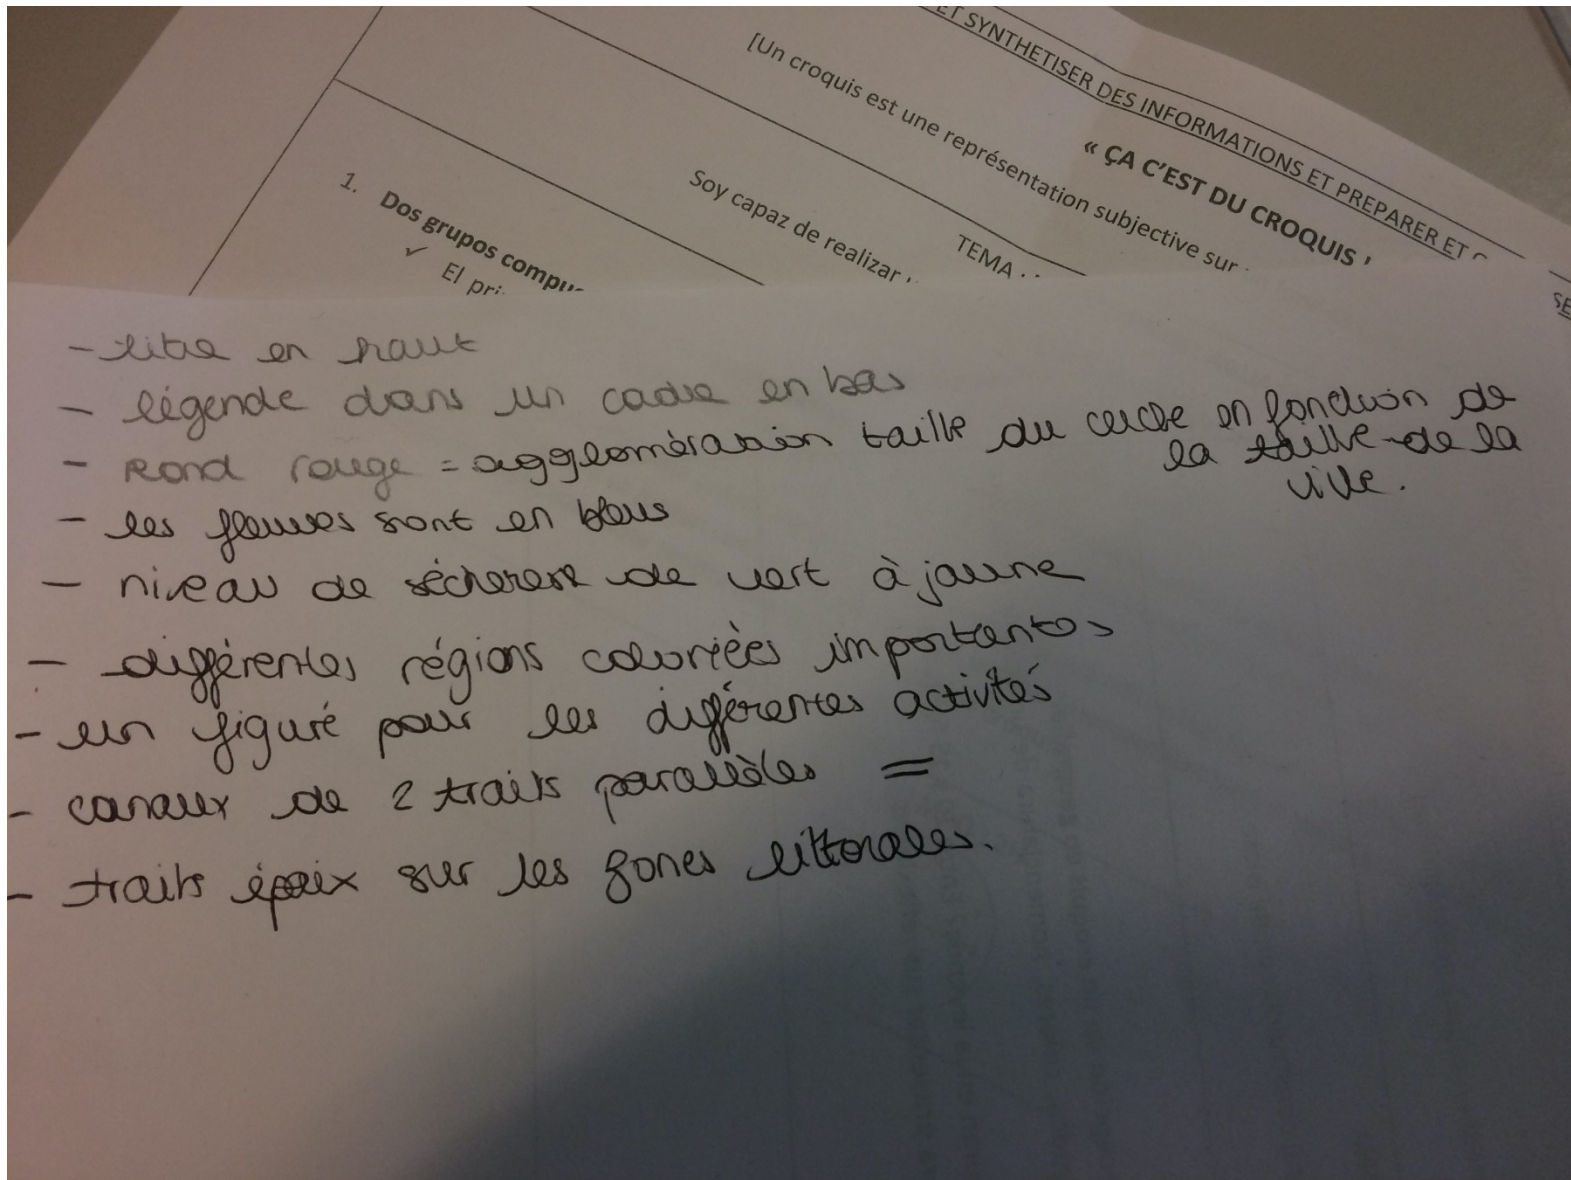 ET SYNTHETISER DES INFORMATIONS ET PREPARER ET
« ÇA C'EST DU CROQUIS
[Un croquis est une représentation subjective sur
TEMA
Soy capaz de realizar
1. Dos grupos compu
✓ El pri
SE
- titre en haut
- légende dans un cadre en bas
- Rond rouge = agglomération taille du cercle en fonction de
la taille de la
ville.
- les fleuves sont en bleus
- niveau de sécheresse de vert à jaune
- différentes régions coloriées importantes
- un figuré pour les différentes activités
- canaux de 2 traits parallèles =
- traits épaix sur les zones littorales.